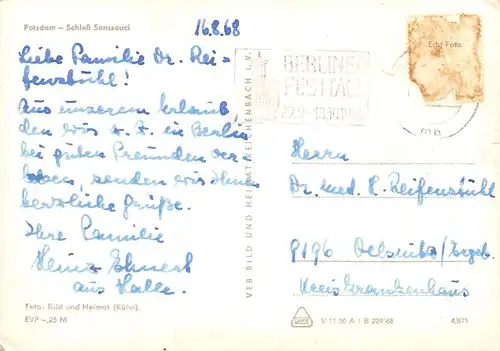 Potsdam – Schloß Sanssouci
16.8.68
Liebe Familie Dr. Rei-
fenstühl!
Aus unserem Urlaub,
den wir z. Z. in Berlin
bei guten Freunden ver-
leben, senden wir Ihnen
herzliche Grüße.
Ihre Familie
Heinz Ehnert
aus Halle.
Foto: Bild und Heimat (Kühn)
EVP –,25 M
VEB BILD UND HEIMAT REICHENBACH i. V.
BERLINER
FESTTAGE
Echt Foto
Herrn
Dr. med. H. Reifenstühl
9196 Oelsnitz/Erzgeb.
Kreiskrankenhaus
V 11 50 A 1 B 229/68
4/671